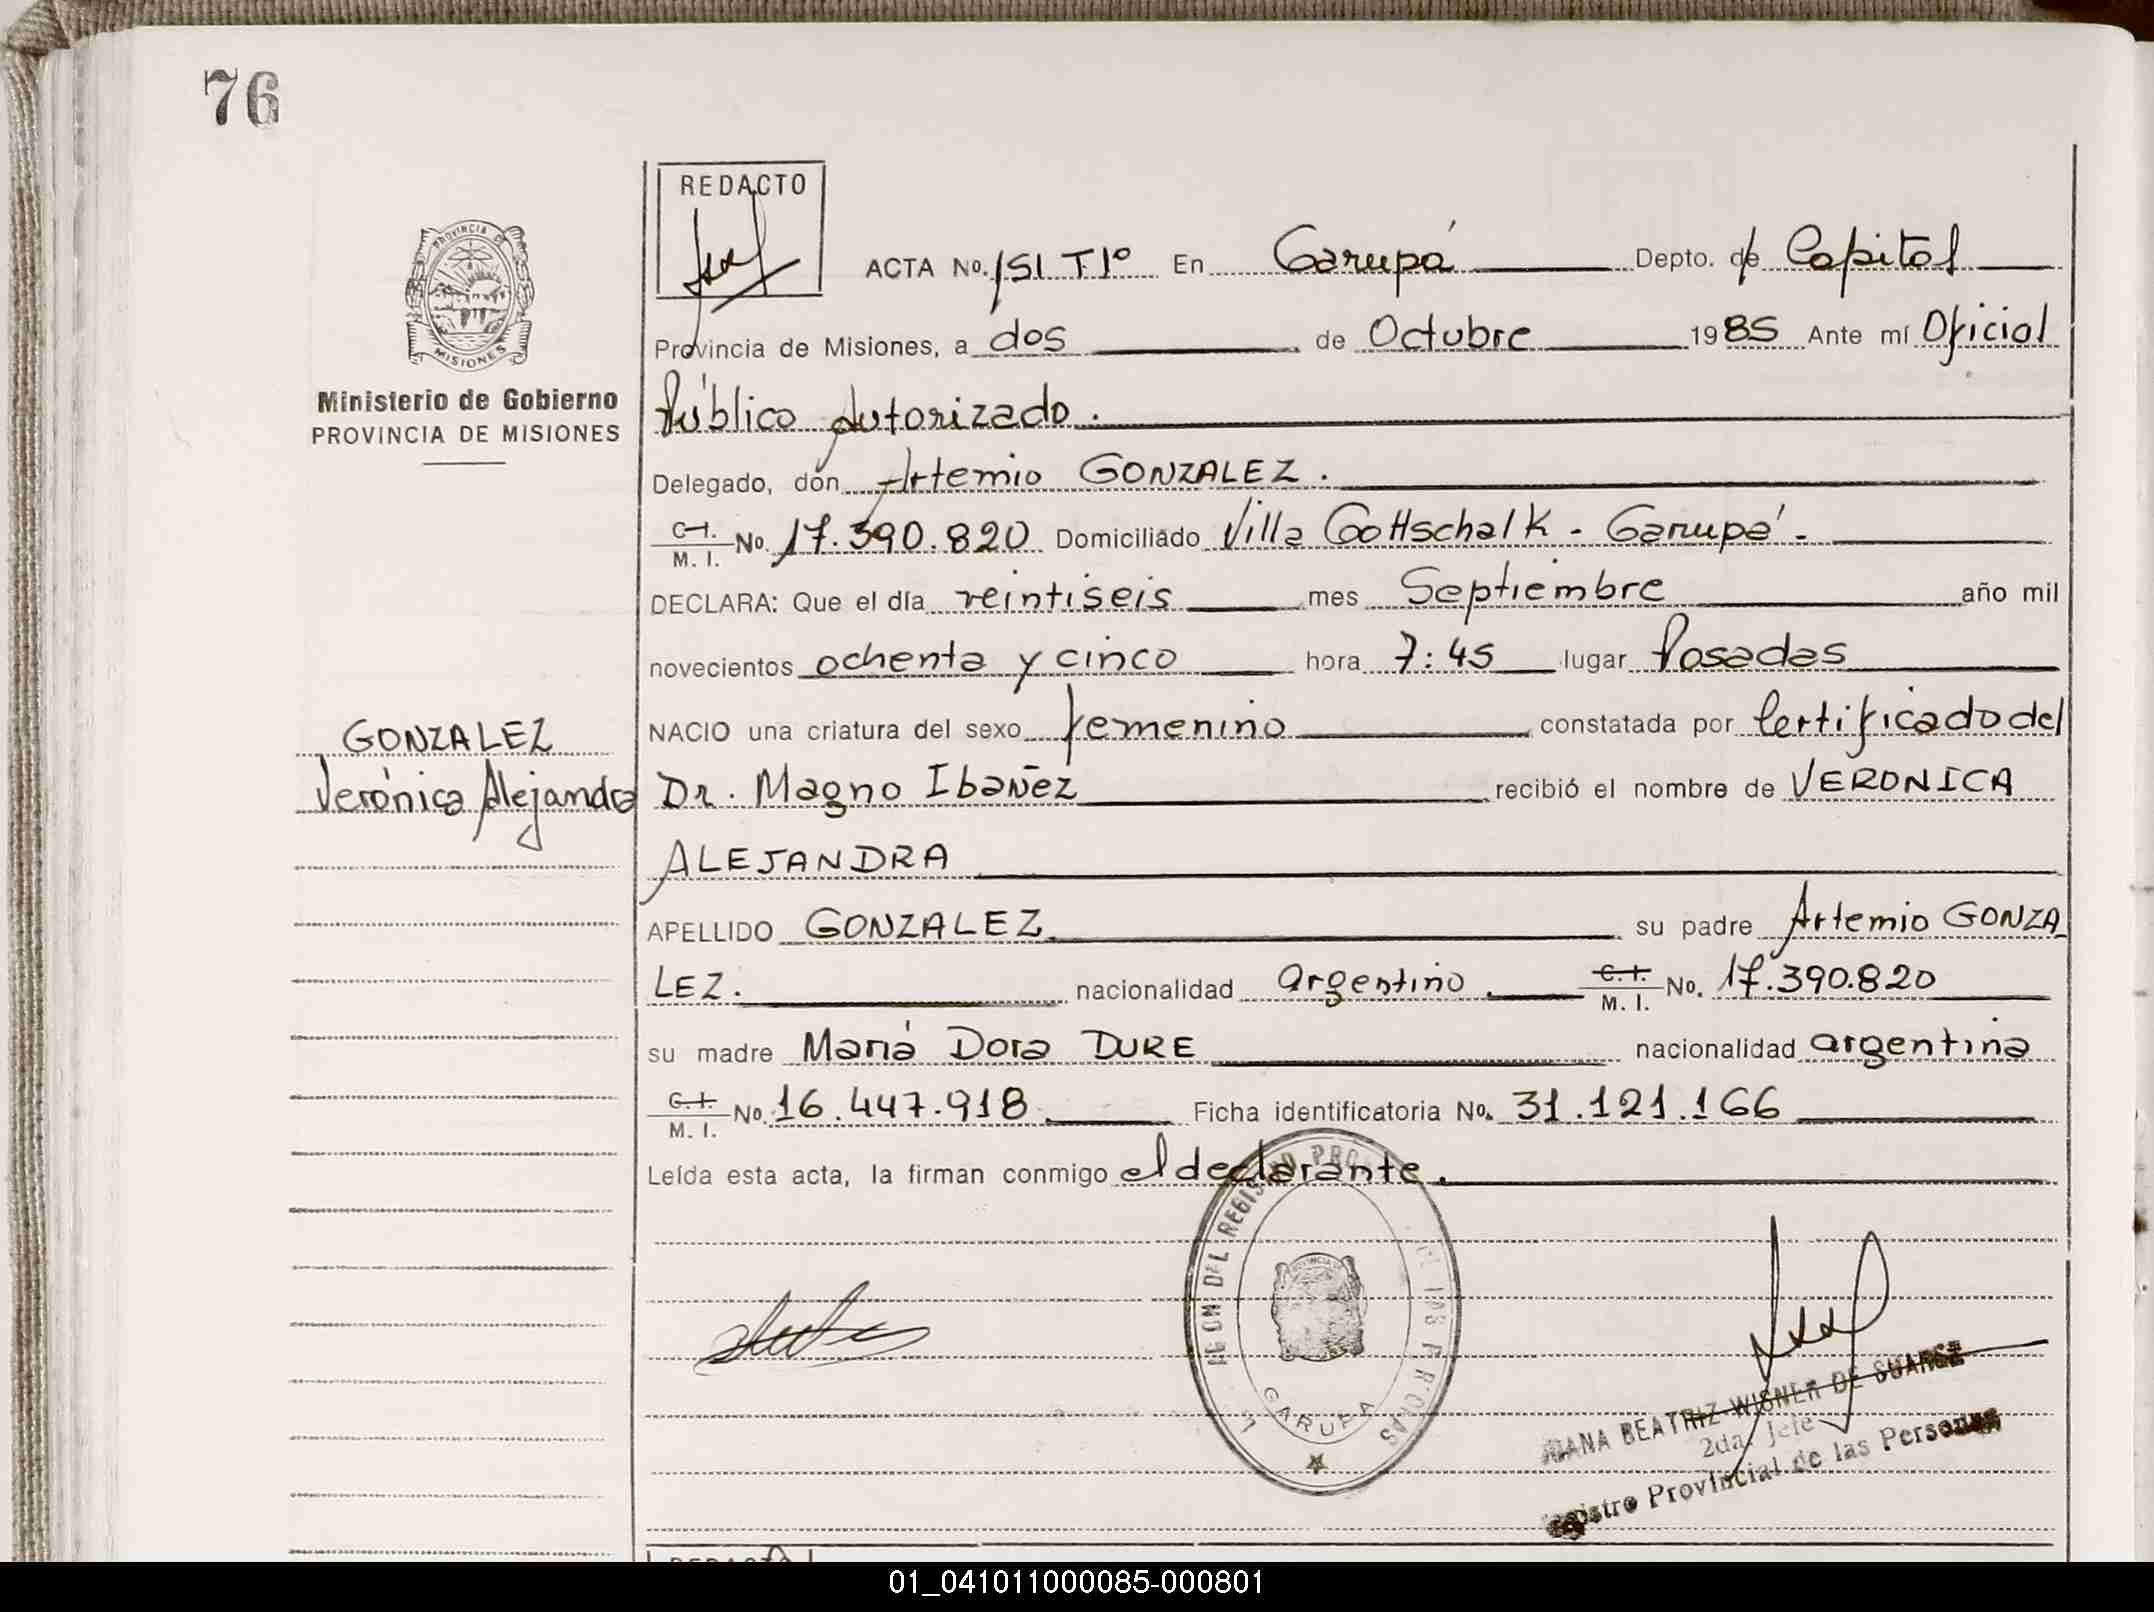 76
REDACTO
PROVINCIA DE
MISIONES
Ministerio de Gobierno
PROVINCIA DE MISIONES
ACTA No. 151 T1º En Garupá Depto. de Capital
Provincia de Misiones, a dos de Octubre 1985 Ante mí Oficial
Público Autorizado.
Delegado, don Artemio GONZALEZ.
C.I. M. I. No. 17.390.820 Domiciliado Villa Gottschalk - Garupá -
DECLARA: Que el día veintiseis mes Septiembre año mil
novecientos ochenta y cinco hora 7:45 lugar Posadas
NACIO una criatura del sexo femenino constatada por Certificado del
GONZALEZ
Verónica Alejandra
Dr. Magno Ibañez recibió el nombre de VERONICA
ALEJANDRA
APELLIDO GONZALEZ su padre Artemio GONZA
LEZ. nacionalidad argentino. C.I. M. I. No. 17.390.820
su madre María Dora DURE nacionalidad argentina
C.I. M. I. No. 16.447.918 Ficha identificatoria No. 31.121.166
Leída esta acta, la firman conmigo el declarante.
DEL REGISTRO PROV
DE LAS PERSONAS
GARUPA
JUANA BEATRIZ WISNER DE SUAREZ
2da. Jefe
Registro Provincial de las Personas
REDACTO
01_041011000085-000801